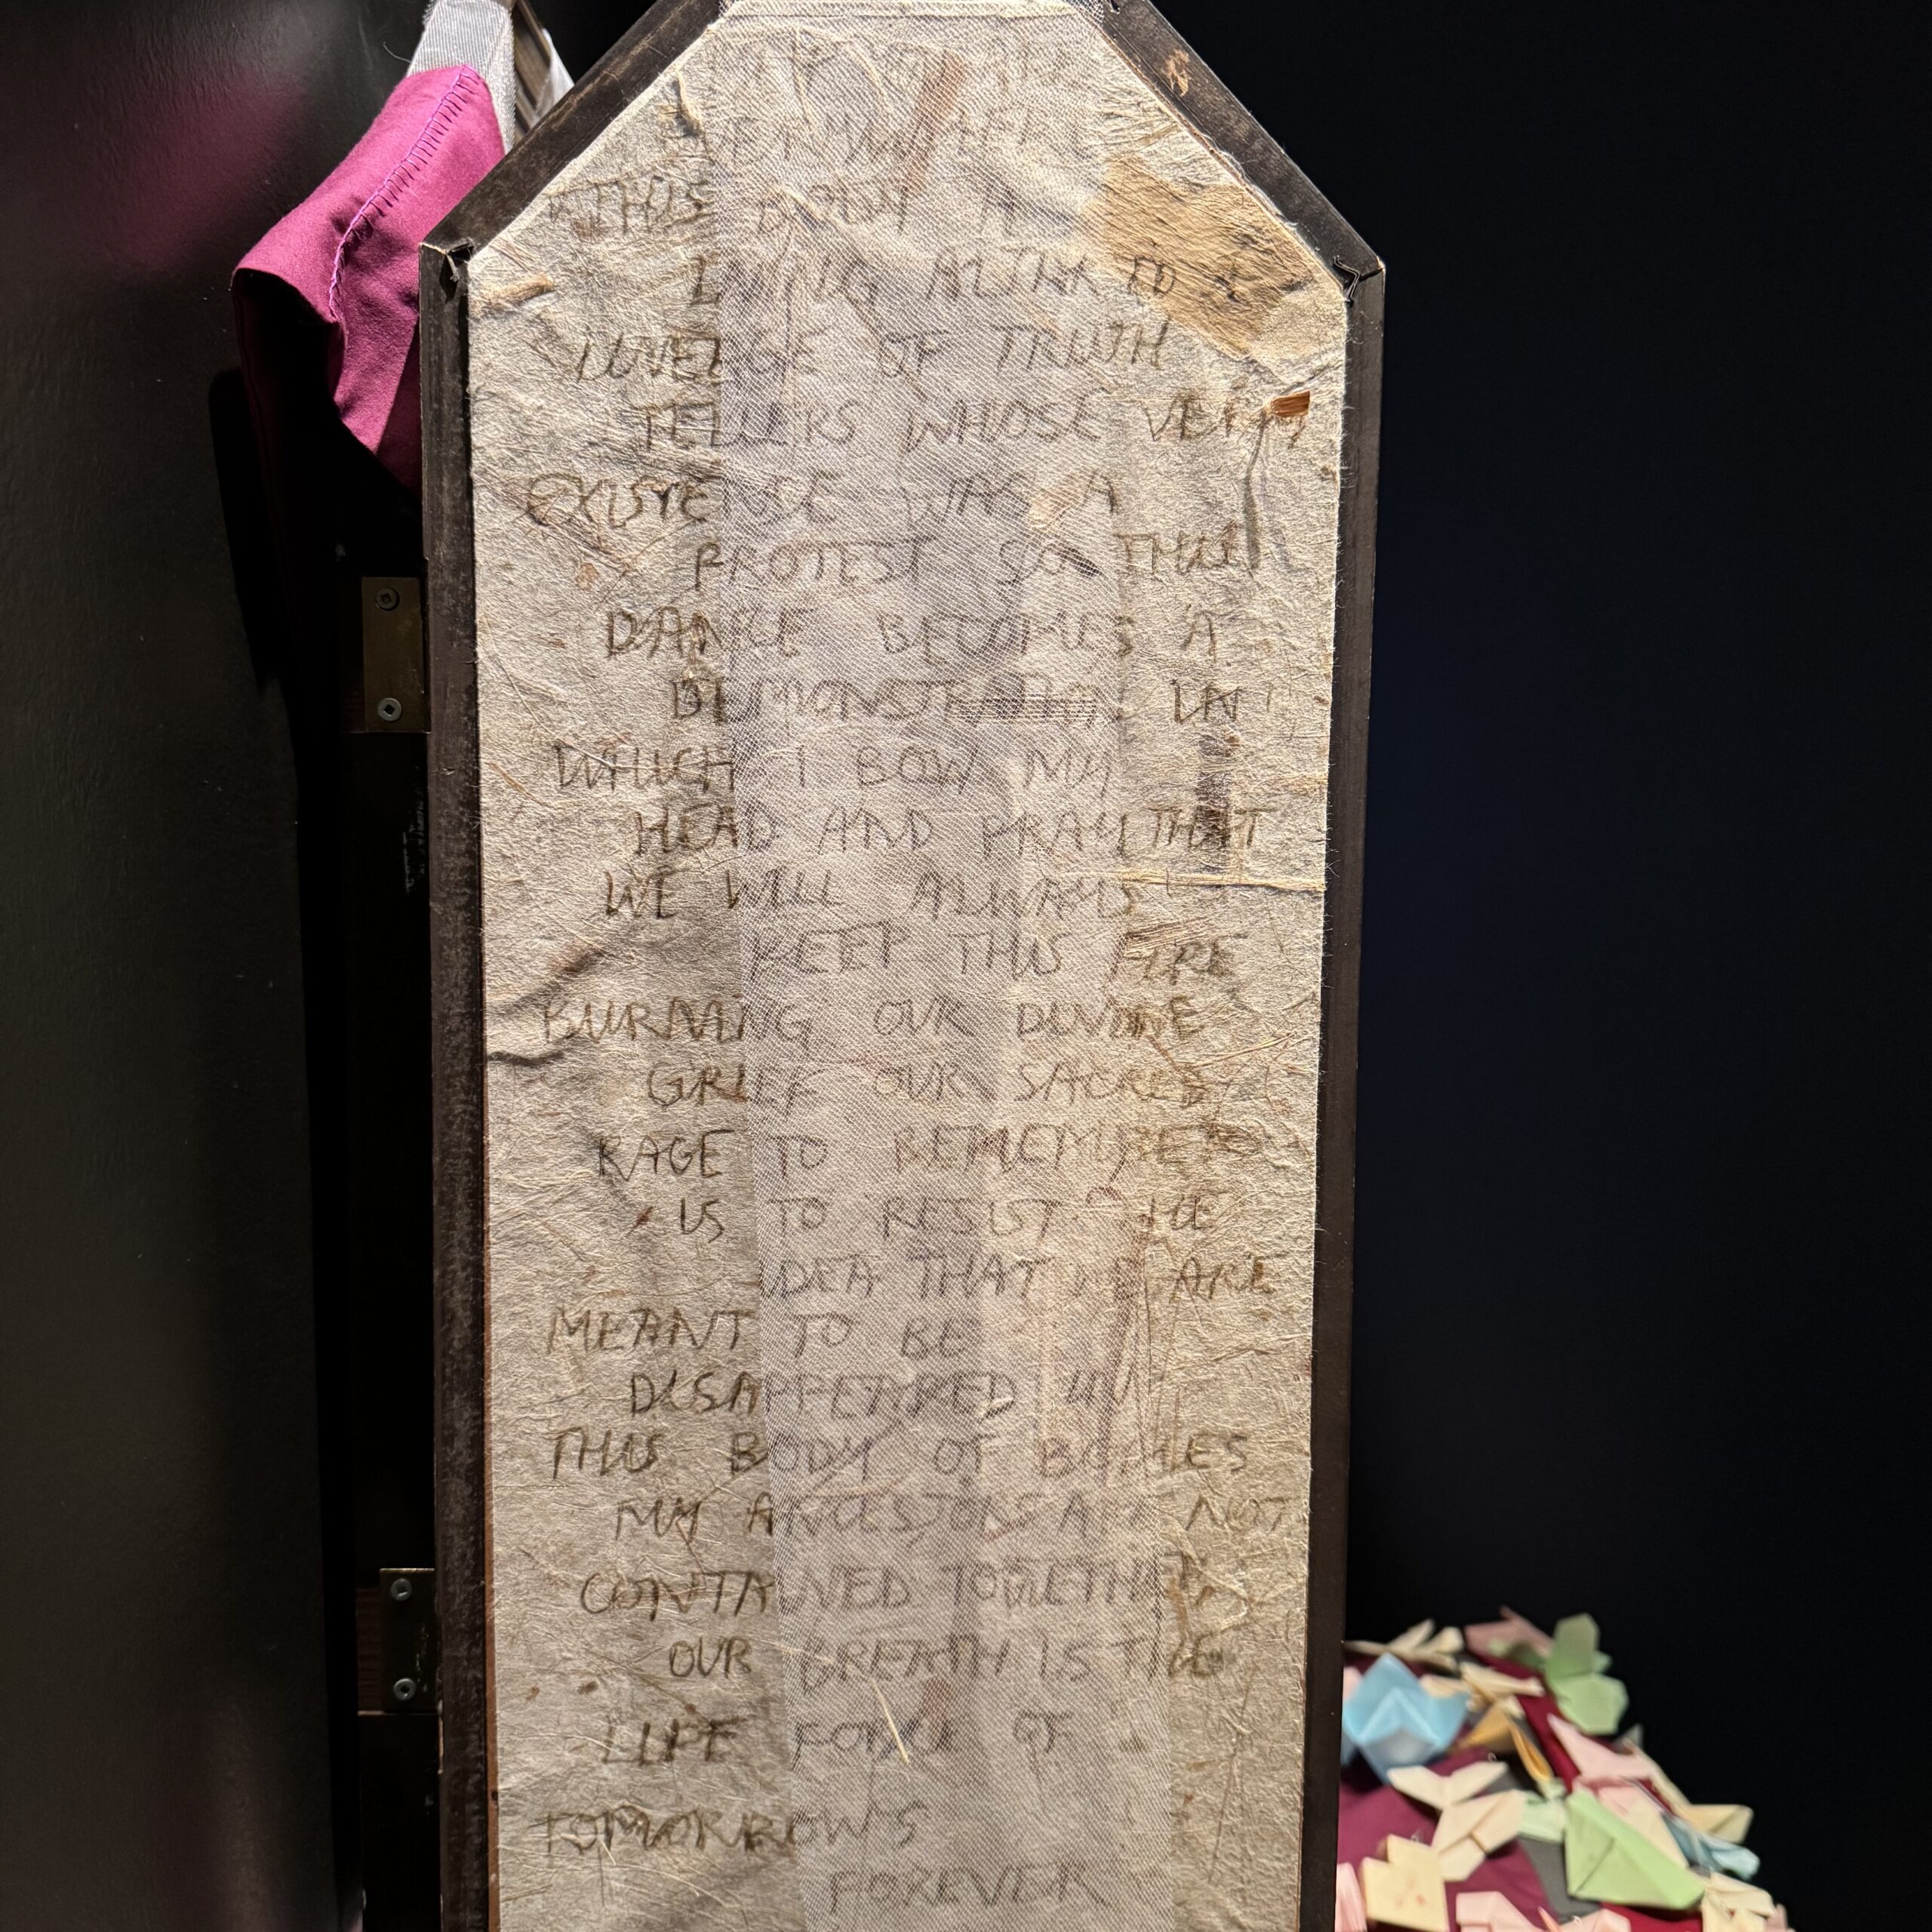 THIS BODY A
LIVING ALTAR TO A
LINEAGE OF TRUTH
TELLERS WHOSE VERY
EXISTENCE WAS A
PROTEST SO THIS
DANCE BECOMES A
DEMONSTRATION IN
WHICH I BOW MY
HEAD AND PRAY THAT
WE WILL ALWAYS
KEEP THIS FIRE
BURNING OUR DIVINE
GRIEF OUR SACRED
RAGE TO REMEMBER
IS TO RESIST THE
IDEA THAT WE ARE
MEANT TO BE
DISAPPEARED IN
THIS BODY OF BODIES
MY ANCESTORS ARE NOT
CONTAINED TOGETHER
OUR BREATH IS THE
LIFE FORCE OF
TOMORROWS
FOREVER